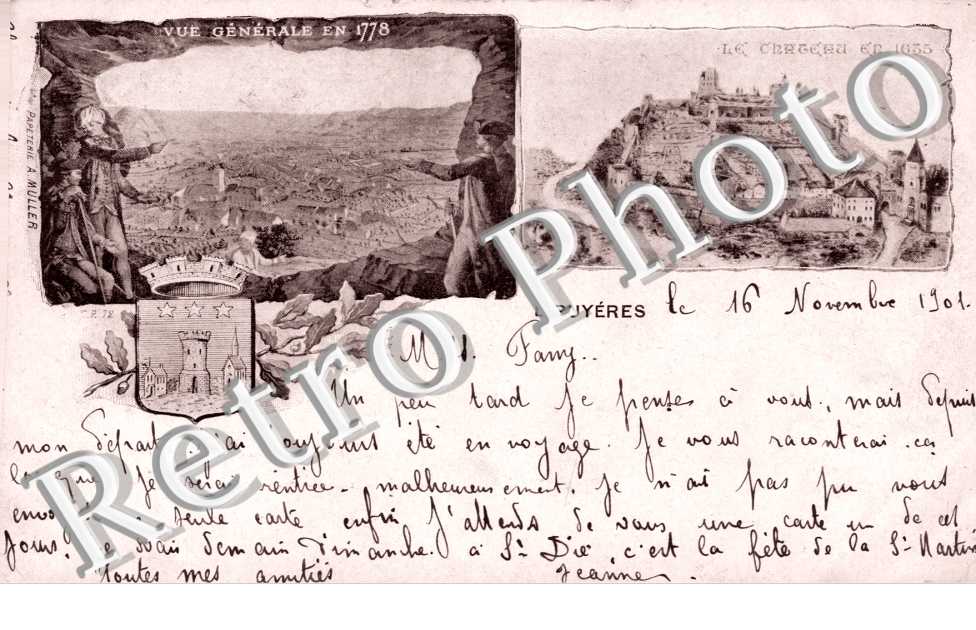 VUE GÉNÉRALE EN 1778
LE CHATEAU EN 1635
PAPETERIE A. MULLER
BRUYÉRES le 16 Novembre 1901.
Fanny..
Un peu tard je pense à vous, mais depuis
mon départ j'ai toujours été en voyage. Je vous raconterai ça
que je serai rentrée. malheureusement je n'ai pas pu vous
seule carte enfin J'attends de vous une carte un de ces
Jours, je vais demain Dimanche. à St Dié, c'est la fête de la St Martin
Toutes mes amitiés
Jeanne.
Retro Photo